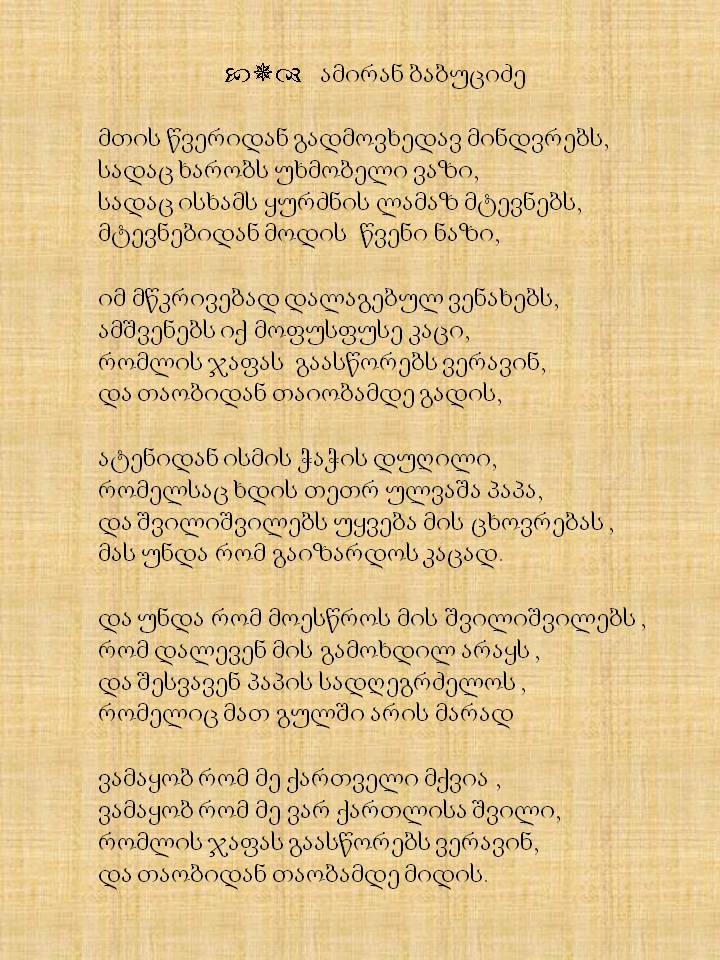 ამირან ბაბუციძე
მთის წვერიდან გადმოვხედავ მინდვრებს,
სადაც ხარობს უხმობელი ვაზი,
სადაც ისხამს ყურძნის ლამაზ მტევნებს,
მტევნებიდან მოდის წვენი ნაზი,
იმ მწკრივებად დალაგებულ ვენახებს,
ამშვენებს იქ მოფუსფუსე კაცი,
რომლის ჯაფას გაასწორებს ვერავინ,
და თაობიდან თაიობამდე გადის,
ატენიდან ისმის ჭაჭის დუღილი,
რომელსაც ხდის თეთრ ულვაშა პაპა,
და შვილიშვილებს უყვება მის ცხოვრებას ,
მას უნდა რომ გაიზარდოს კაცად.
და უნდა რომ მოესწროს მის შვილიშვილებს ,
რომ დალევენ მის გამოხდილ არაყს ,
და შესვავენ პაპის სადღეგრძელოს ,
რომელიც მათ გულში არის მარად
ვამაყობ რომ მე ქართველი მქვია ,
ვამაყობ რომ მე ვარ ქართლისა შვილი,
რომლის ჯაფას გაასწორებს ვერავინ,
და თაობიდან თაობამდე მიდის.